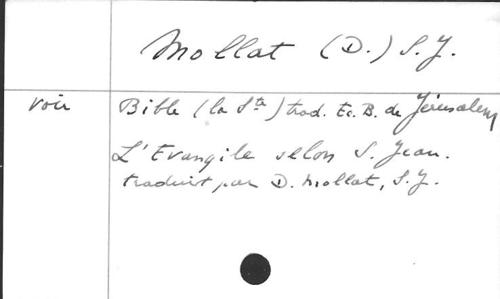 Mollat (D.) S.J.
voir Bible (la Ste) trad. Ec. B. de Jérusalem
L'Evangile selon S. Jean.
traduit par D. Mollat, S.J.